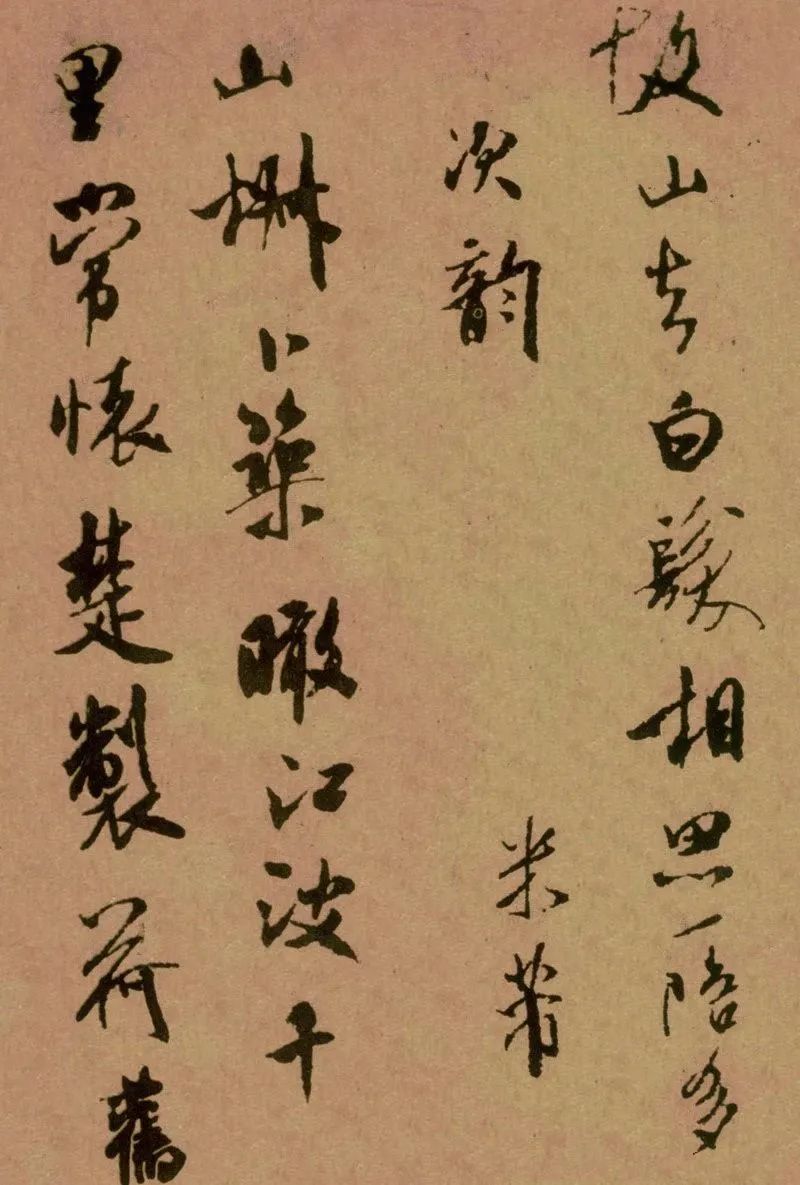 故山去白髮相思一陪多
次韻 米芾
山椒卜築瞰江波千
里常懷楚製荷舊